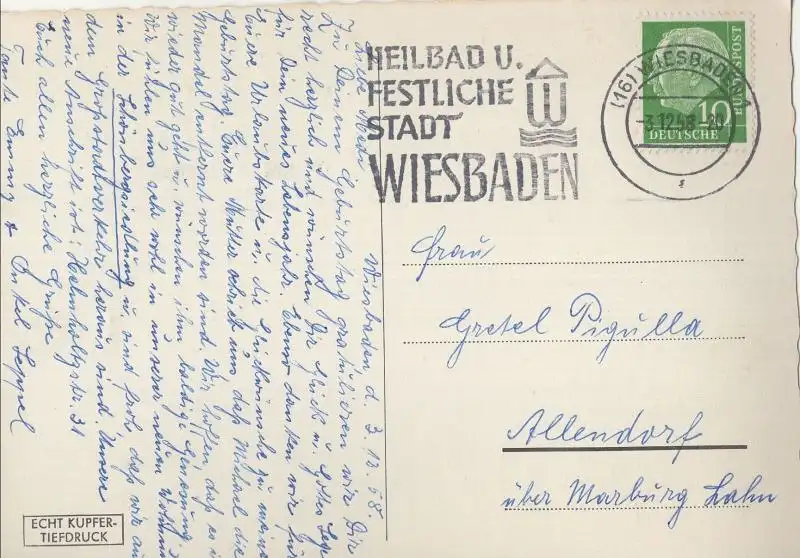 Wiesbaden d. 3.12.58
Liebe
Zu Deinem Geburtstag gratulieren wir Dir
recht herzlich und wünschen Dir Glück u. Gottes Segen
für Dein neues Lebensjahr. Ebenso danken wir für
Euere Urlaubskarte u. die Glückwünsche zu meinem
Geburtstag. Euere Mutter schrieb uns daß Michael die
Mandel entfernt worden sind. Wir hoffen, daß es ihm
wieder gut geht u. wünschen ihm baldige Genesung.
Wir fühlen uns sehr wohl in unserer neuen Wohnung
in der Schönbergsiedlung u. sind froh, daß wir aus
dem Großstadtverkehr heraus sind. Unsere
neue Anschrift ist: Helmholtzstr. 31
Euch allen herzliche Grüße
Tante Emmy & Onkel Seppel
ECHT KUPFER-
TIEFDRUCK
HEILBAD U.
FESTLICHE
STADT
WIESBADEN
(16) WIESBADEN 1
-3.12.58
DEUTSCHE
BUNDESPOST
10
Frau
Gretel Pigulla
Allendorf
über Marburg Lahn